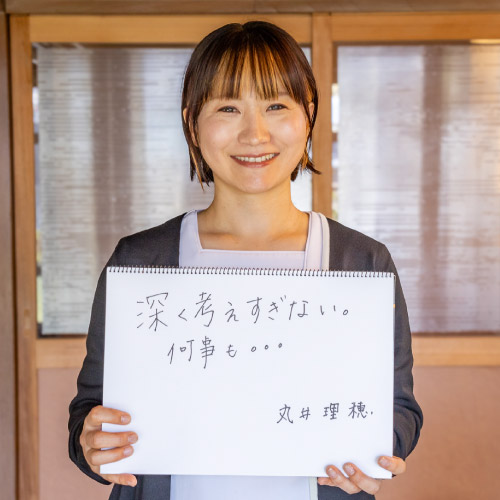 深く考えすぎない。
何事も。。。
丸井理穂.